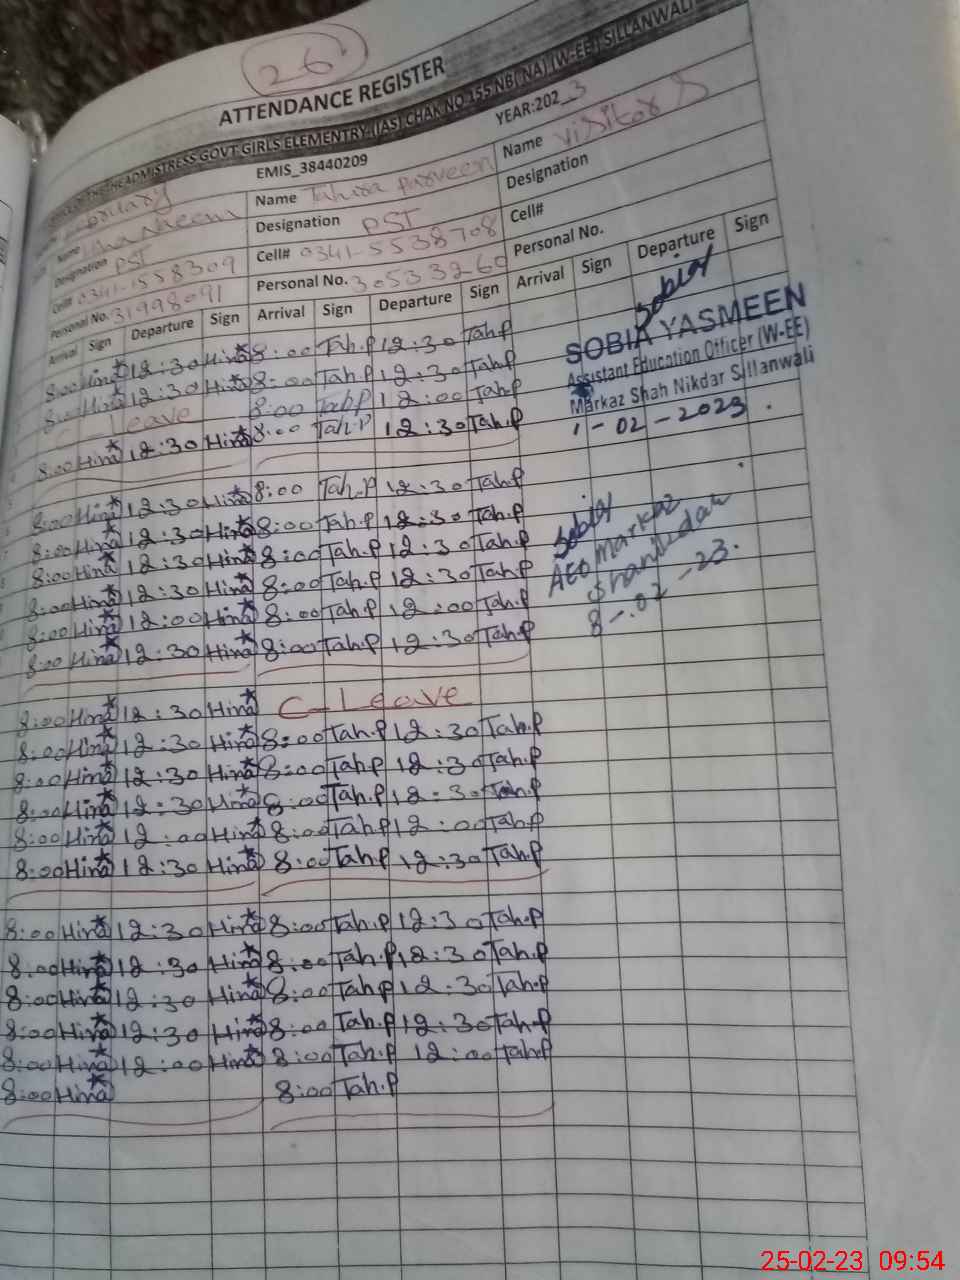 26
ATTENDANCE REGISTER
HEADMISTRESS GOVT GIRLS ELEMENTRY (IAS) CHAK NO.155 NB( NA) (W-EE) SILLANWALI
EMIS_38440209 YEAR:202_3
Name Name Tahira Parveen Name Visitors
Designation PST Designation PST Designation
Cell# 0341-1558309 Cell# 0341-5538708 Cell#
Personal No. 31998091 Personal No. 30533260 Personal No.
Arrival Sign Departure Sign Arrival Sign Departure Sign Arrival Sign Departure Sign
8:00 Hina 12:30 Hina 8:00 Tah.P 12:30 Tah.P Sobia
SOBIA YASMEEN
8:00 Hina 12:30 Hina 8:00 Tah.P 12:30 Tah.P
Assistant Education Officer (W-EE)
Leave 8:00 Tah.P 12:00 Tah.P
Markaz Shah Nikdar Sillanwali
8:00 Hina 12:30 Hina 8:00 Tah.P 12:30 Tah.P
1-02-2023
8:00 Hina 12:30 Hina 8:00 Tah.P 12:30 Tah.P
8:00 Hina 12:30 Hina 8:00 Tah.P 12:30 Tah.P Sobia
8:00 Hina 12:30 Hina 8:00 Tah.P 12:30 Tah.P AEO Markaz
8:00 Hina 12:30 Hina 8:00 Tah.P 12:30 Tah.P
8:00 Hina 12:00 Hina 8:00 Tah.P 12:00 Tah.P 8-02-23.
8:00 Hina 12:30 Hina 8:00 Tah.P 12:30 Tah.P
8:00 Hina 12:30 Hina C-Leave
8:00 Hina 12:30 Hina 8:00 Tah.P 12:30 Tah.P
8:00 Hina 12:30 Hina 8:00 Tah.P 12:30 Tah.P
8:00 Hina 12:30 Hina 8:00 Tah.P 12:30 Tah.P
8:00 Hina 12:00 Hina 8:00 Tah.P 12:00 Tah.P
8:00 Hina 12:30 Hina 8:00 Tah.P 12:30 Tah.P
8:00 Hina 12:30 Hina 8:00 Tah.P 12:30 Tah.P
8:00 Hina 12:30 Hina 8:00 Tah.P 12:30 Tah.P
8:00 Hina 12:30 Hina 8:00 Tah.P 12:30 Tah.P
8:00 Hina 12:30 Hina 8:00 Tah.P 12:30 Tah.P
8:00 Hina 12:00 Hina 8:00 Tah.P 12:00 Tah.P
8:00 Hina 8:00 Tah.P
25-02-23 09:54